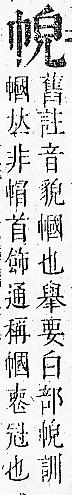 舊註音貌幗也舉要白部訓
幗𠀤非帽首飾通稱幗喪冠也